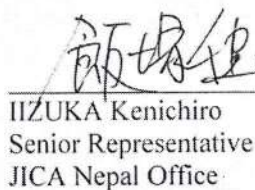 飯塚健
IIZUKA Kenichiro
Senior Representative
JICA Nepal Office